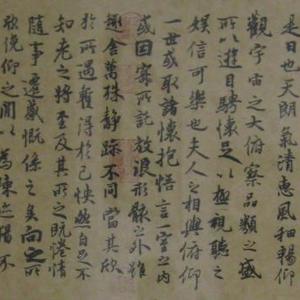 是日也天朗氣清惠風和暢仰
觀宇宙之大俯察品類之盛
所以遊目騁懷足以極視聽之
娛信可樂也夫人之相與俯仰
一世或取諸懷抱悟言一室之內
或因寄所託放浪形骸之外雖
趣舍萬殊靜躁不同當其欣
於所遇暫得於己快然自足不
知老之將至及其所之既惓情
隨事遷感慨係之矣向之所
欣俛仰之間以為陳迹猶不